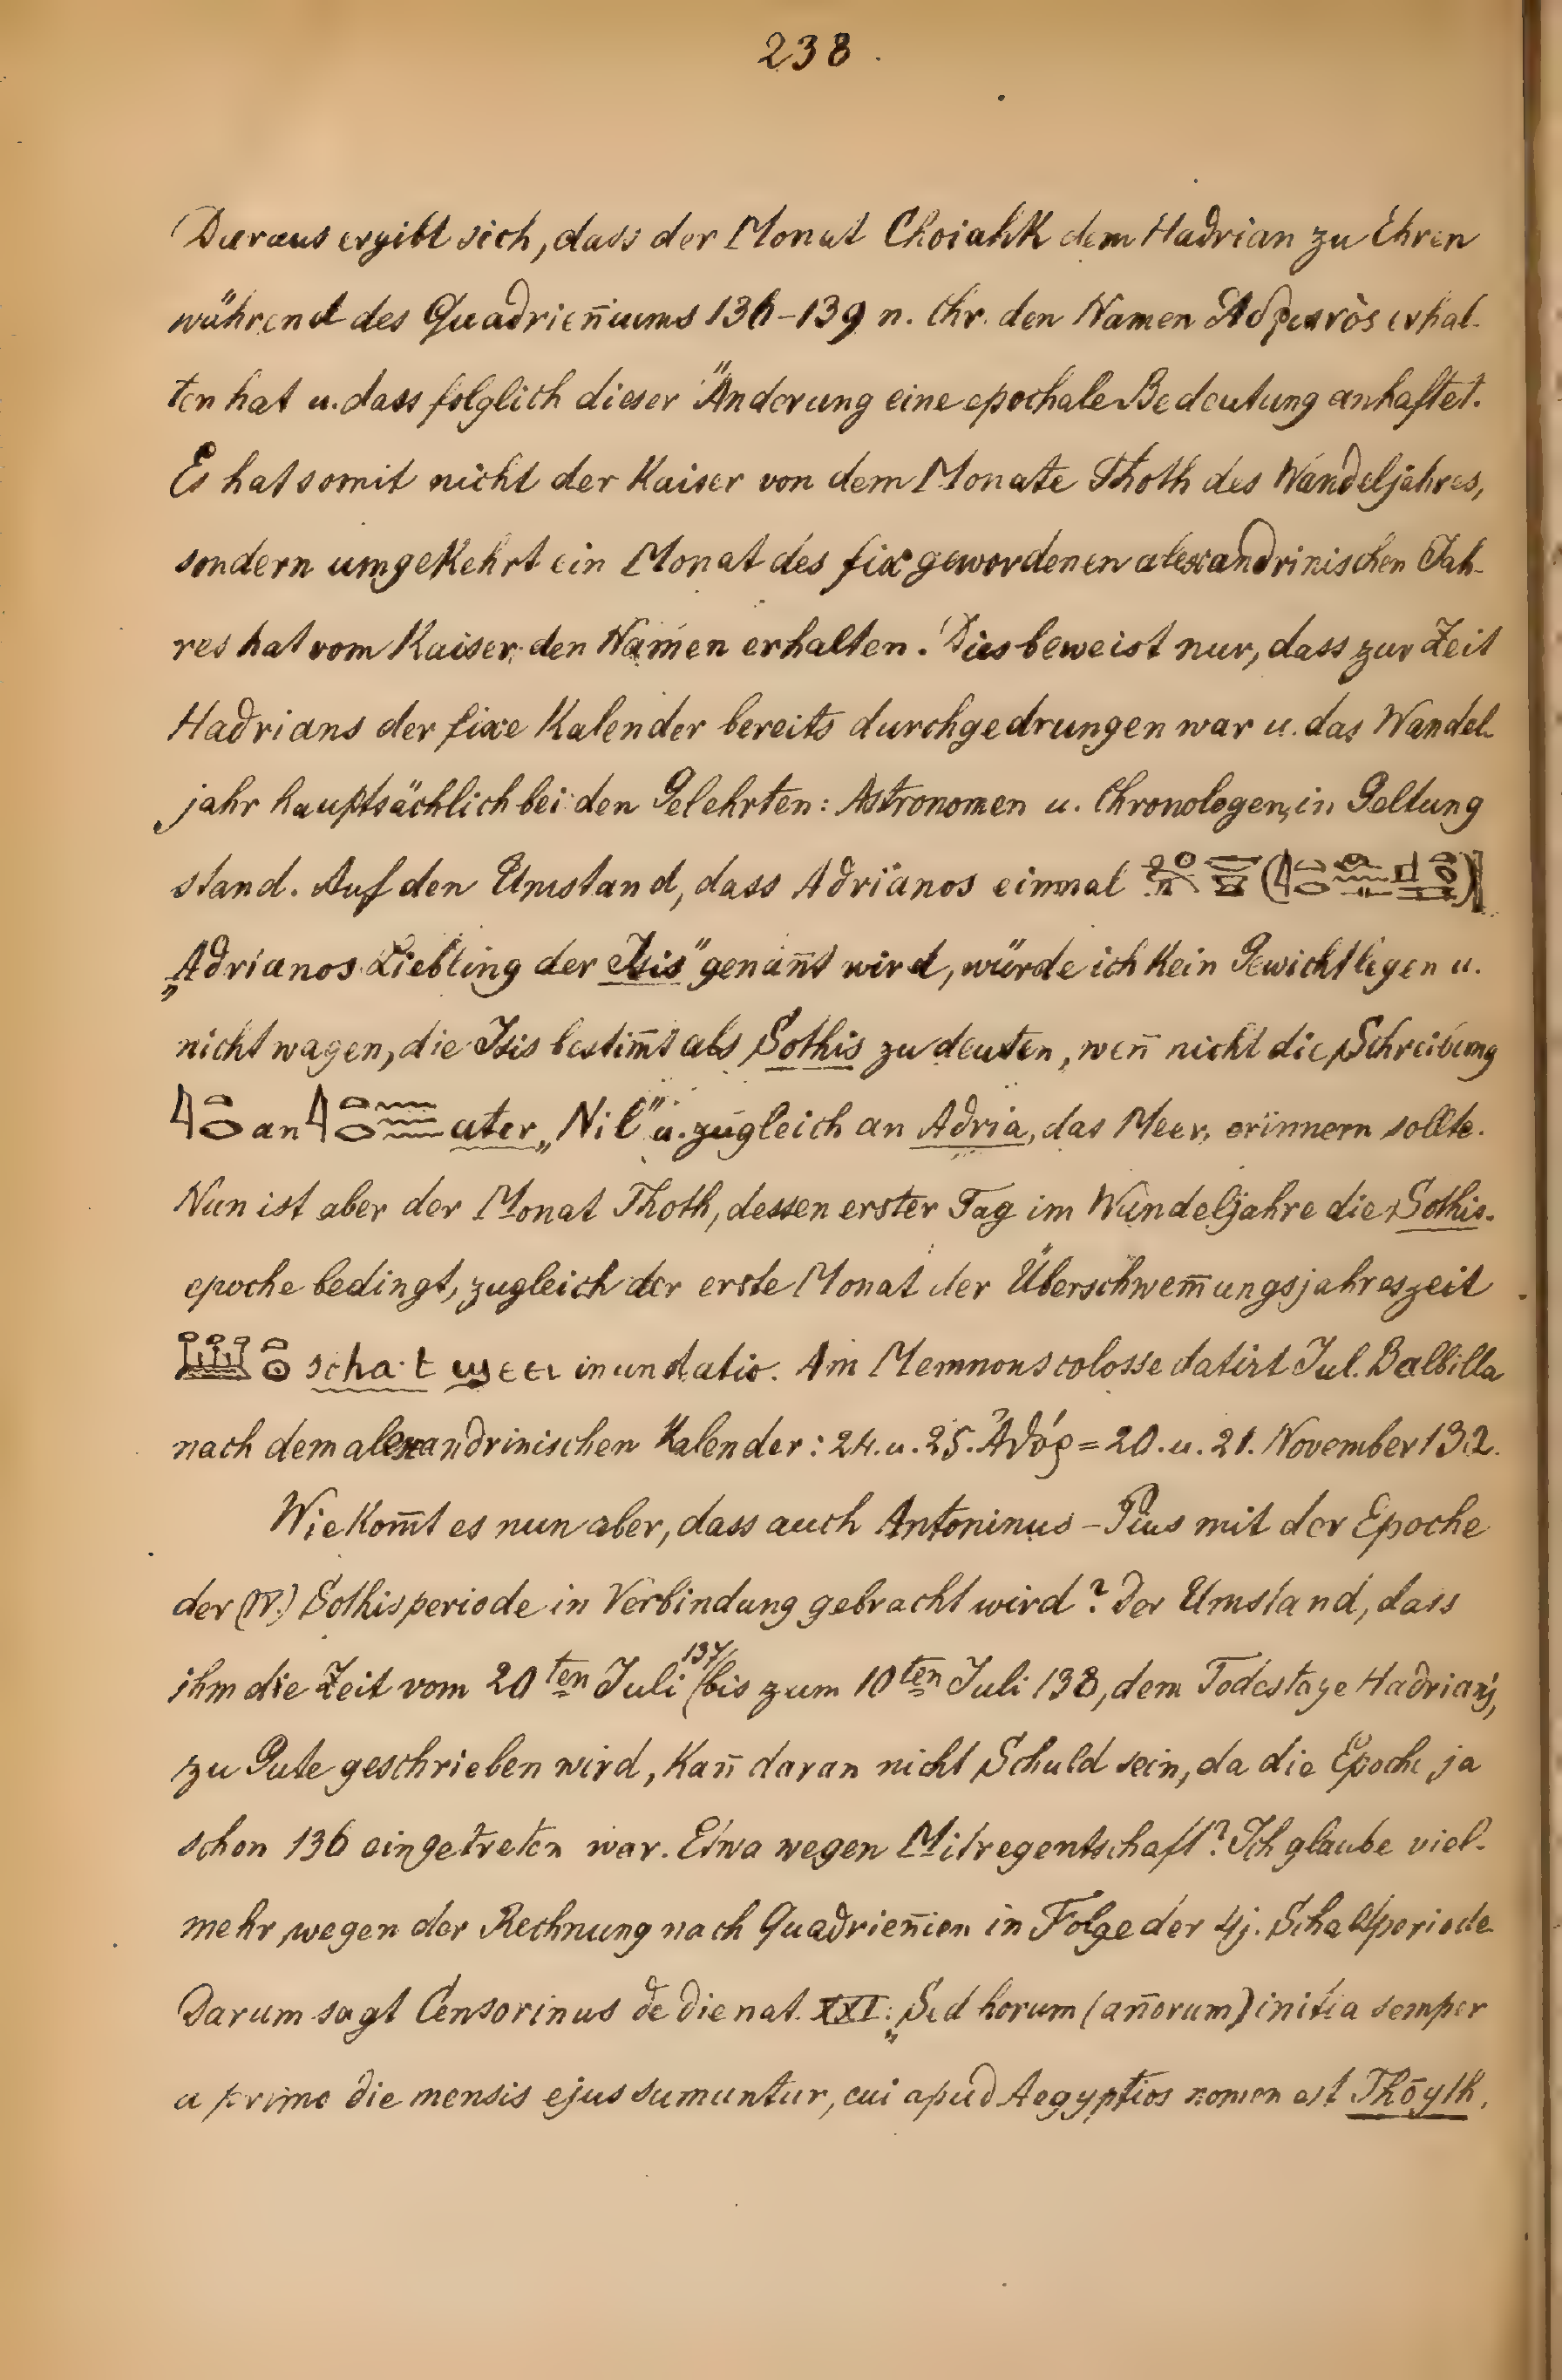 238.
Daraus ergibt sich, dass der Monat Choiahk dem Hadrian zu Ehren
während des Quadrien̄iums 136–139 n. Chr. den Namen Ἀδριανὸς erhal-
ten hat u. dass folglich dieser Änderung eine epochale Bedeutung anhaftet.
Es hat somit nicht der Kaiser von dem Monate Thoth des Wandeljahres,
sondern umgekehrt ein Monat des fix gewordenen alexandrinischen Jah-
res hat vom Kaiser den Namen erhalten. Dies beweist nur, dass zur Zeit
Hadrians der fixe Kalender bereits durchgedrungen war u. das Wandel-
jahr hauptsächlich bei den Gelehrten: Astronomen u. Chronologen, in Geltung
stand. Auf den Umstand, dass Adrianos einmal
„Adrianos Liebling der Isis" genan̄t wird, würde ich kein Gewicht legen u.
nicht wagen, die Isis bestim̄t als Sothis zu deuten, wen̄ nicht die Schreibung
an ater „Nil" u. zugleich an Adria, das Meer, erinnern sollte.
Nun ist aber der Monat Thoth, dessen erster Tag im Wandeljahre die Sothis-
epoche bedingt, zugleich der erste Monat der Überschwem̄ungsjahreszeit
scha·t inundatio. Am Memnonscolosse datirt Jul. Balbilla
nach dem alexandrinischen Kalender: 24. u. 25. Ἀθύρ = 20. u. 21. November 132.
Wie kom̄t es nun aber, dass auch Antoninus–Pius mit der Epoche
der (IV.) Sothisperiode in Verbindung gebracht wird? Der Umstand, dass
ihm die Zeit vom 20ten Juli 137/ bis zum 10ten Juli 138, dem Todestage Hadrian's,
zu Gute geschrieben wird, kan̄ daran nicht Schuld sein, da die Epoche ja
schon 136 eingetreten war. Etwa wegen Mitregentschaft? Ich glaube viel-
mehr, wegen der Rechnung nach Quadrien̄ien in Folge der 4j. Schaltperiode.
Darum sagt Censorinus de die nat. XXI: „Sed horum (an̄orum) initia semper
a primo die mensis ejus sumuntur, cui apud Aegyptios nomen est Thōyth,